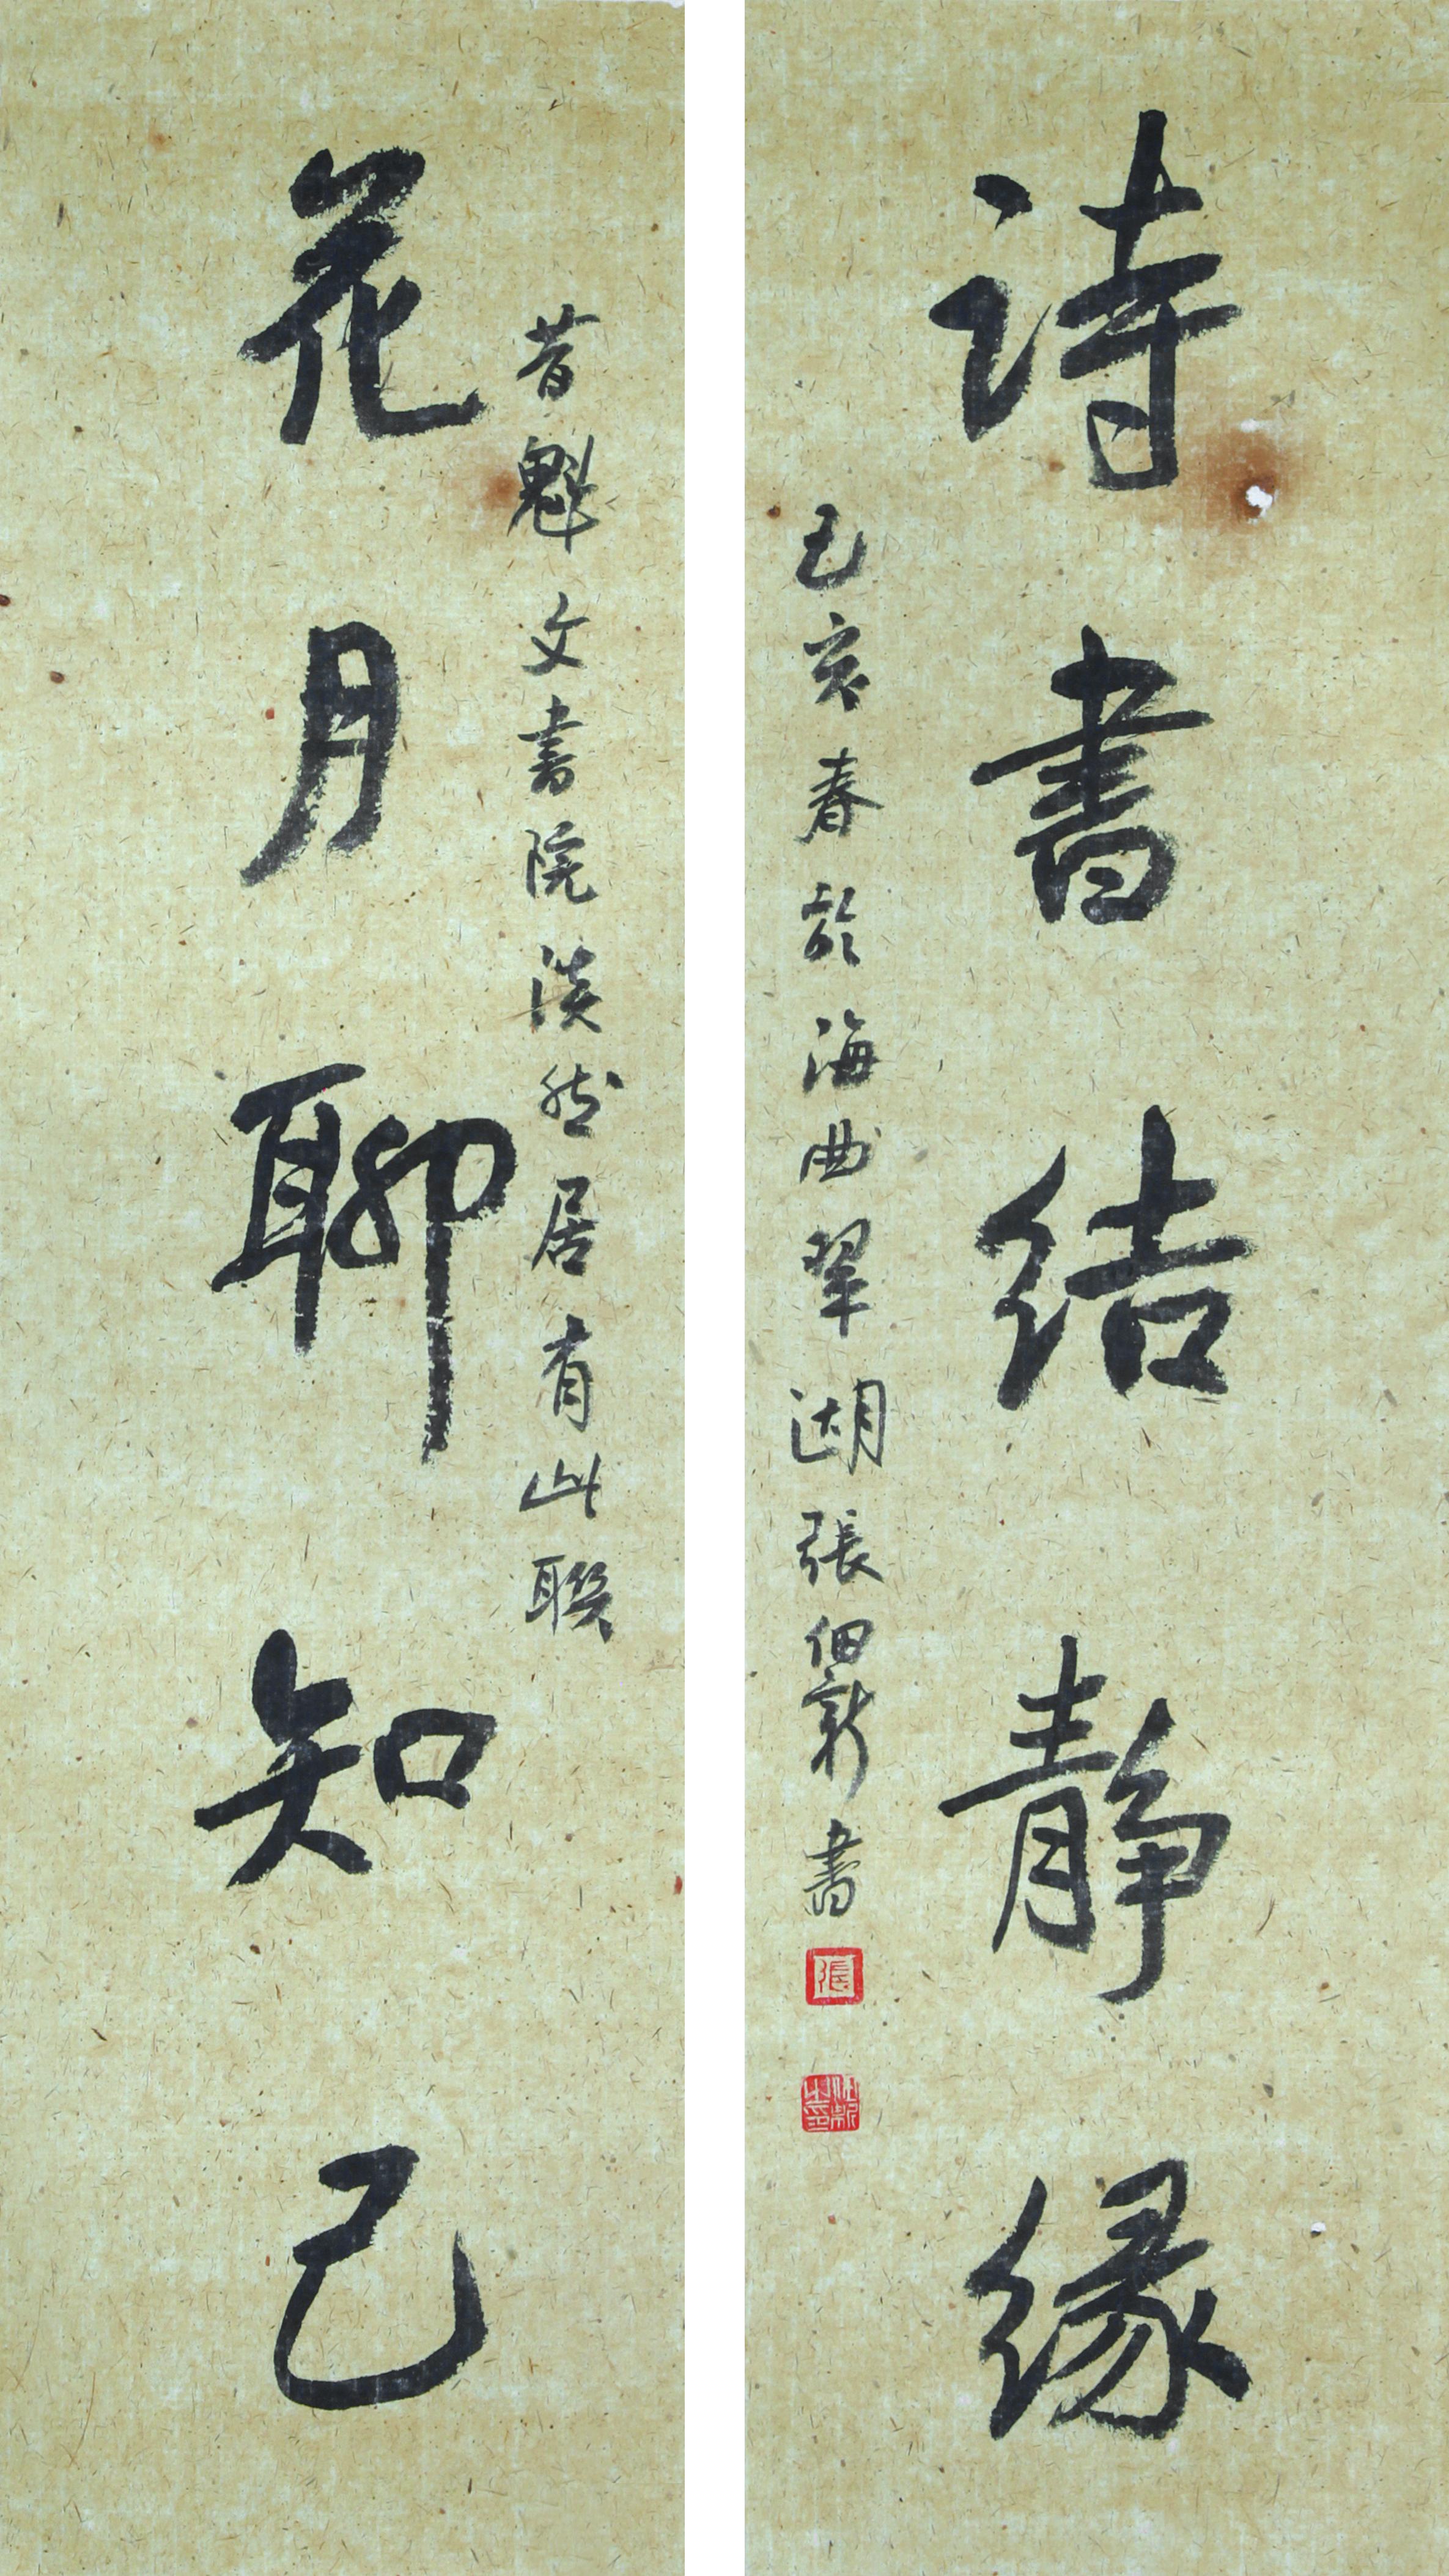 诗書结静缘
己亥春於海曲翠湖張佃新書
張
花月聊知己
昔魁文書院淡然居有此联